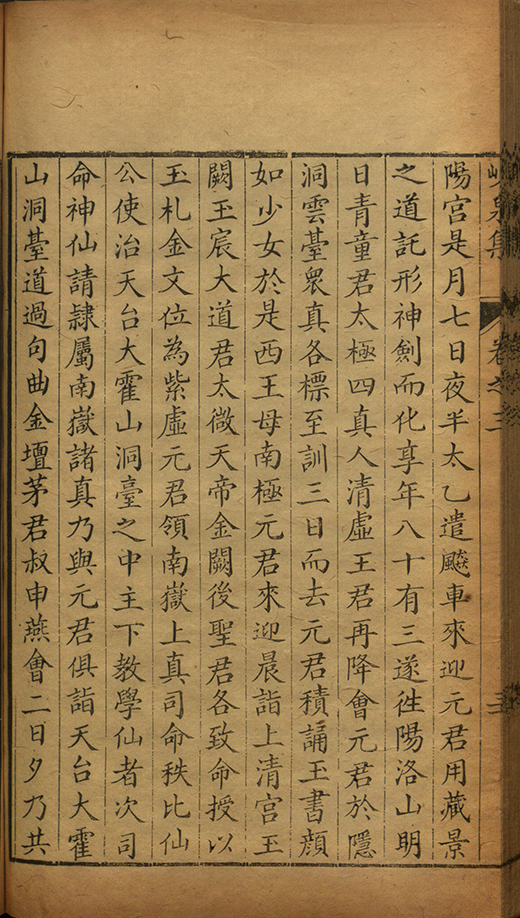 峴泉集 卷之三
陽宮是月七日夜半太乙遣飈車來迎元君用藏景
之道託形神劍而化享年八十有三遂徃陽洛山明
日青童君太極四真人清虛王君再降會元君於隱
洞雲臺衆真各標至訓三日而去元君積誦玉書顔
如少女於是西王母南極元君來迎晨詣上清宮玉
闕玉宸大道君太微天帝金闕後聖君各致命授以
玉札金文位為紫虛元君領南嶽上真司命秩比仙
公使治天台大霍山洞臺之中主下教學仙者次司
命神仙請隷屬南嶽諸真乃與元君俱詣天台大霍
山洞臺道過句曲金壇茅君叔申燕會二日夕乃共